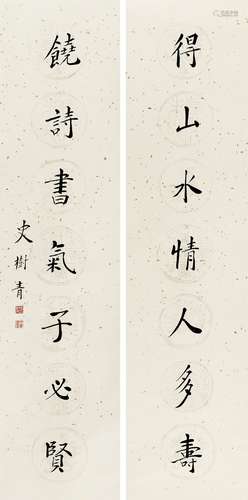 得山水情人多壽
饒詩書氣子必賢
史樹青